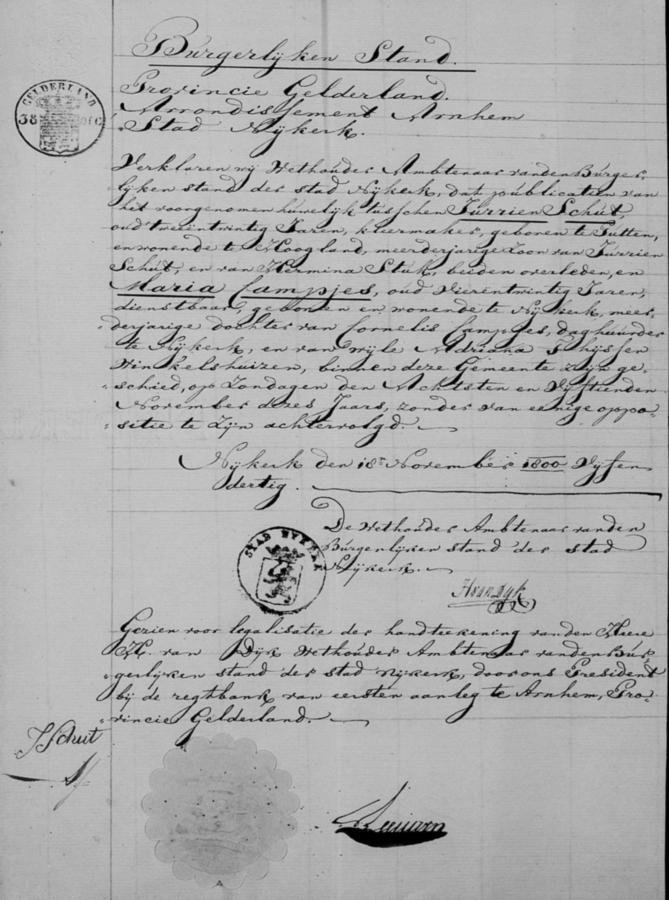 Burgerlyken Stand.
GELDERLAND
38
Provincie Gelderland.
Arrondissement Arnhem
Stad Nijkerk.
Verklaren wij Wethouder Ambtenaar vanden Burger-
lijken stand der stad Nijkerk, dat publication van
het voorgenomen huwelijk tusschen Jurrien Schut,
oud drieëntwintig Jaren, klermaker, geboren te Putten,
en wonende te Hoogland, meerderjarige zoon van Jurrien
Schut, en van Hermina Stuk, beiden overleden, en
Maria Campjes, oud Vierentwintig Jaren,
dienstbaar, geboren en wonende te Nijkerk, meer-
derjarige dochter van Cornelis Campjes, daghuurder
te Nijkerk, en van wijle Adriana Thijssen
Winkelshuizen, binnen deze Gemeente zijn ge-
schied, op Zondagen den Achtsten en Vijftienden
November dezes Jaars, zonder van eenige oppo-
sitie te zijn achtervolgd.
Nijkerk den 18n November 1800 Vijfen
dertig.
De Wethouder Ambtenaar vanden
Burgerlijken stand der stad
Nijkerk.
STAD NYKERK
HvanDyk
Gezien voor legalisatie der handteekening vanden Heere
H. van Dijk Wethouder Ambtenaar vanden Bur-
gerlijken stand der stad Nijkerk, door ons President
bij de regtbank van eersten aanleg te Arnhem, Pro-
vincie Gelderland.
J Schut